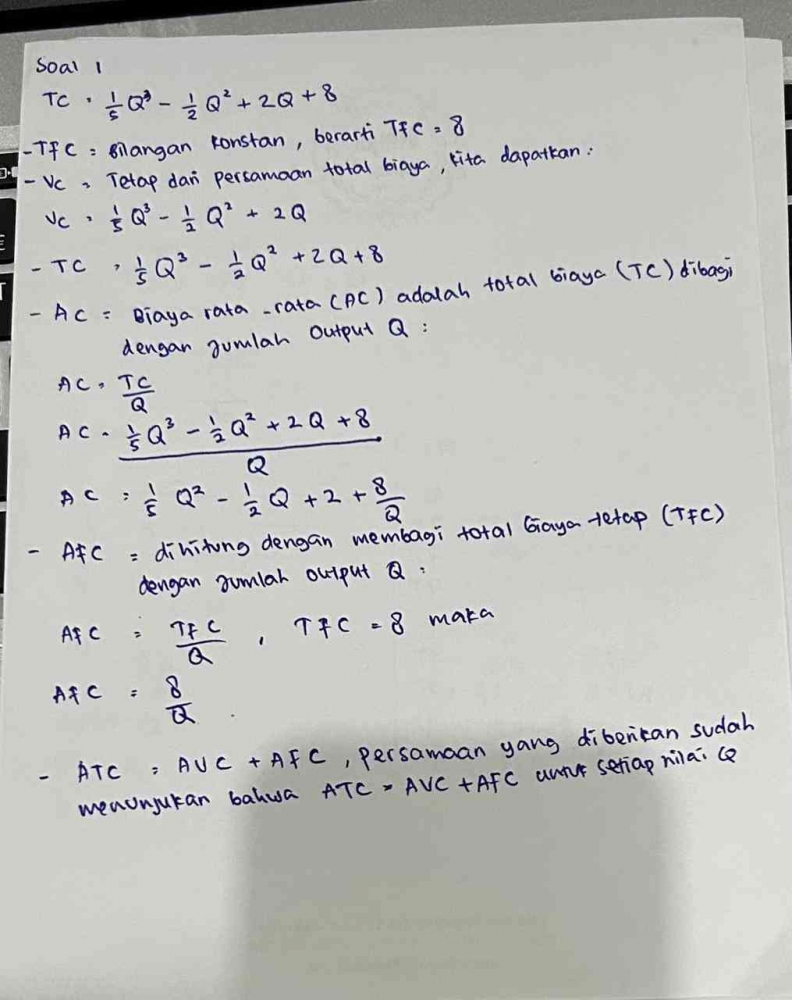 Soal 1
TC = 1/5 Q³ - 1/2 Q² + 2Q + 8
- TFC = Bilangan konstan, berarti TFC = 8
- VC = Tetap dari persamaan total biaya, kita dapatkan :
VC = 1/5 Q³ - 1/2 Q² + 2Q
- TC = 1/5 Q³ - 1/2 Q² + 2Q + 8
- AC = Biaya rata - rata (AC) adalah total biaya (TC) dibagi
dengan jumlah output Q :
AC = TC/Q
AC = (1/5 Q³ - 1/2 Q² + 2Q + 8)/Q
AC = 1/5 Q² - 1/2 Q + 2 + 8/Q
- AFC = dihitung dengan membagi total biaya tetap (TFC)
dengan jumlah output Q :
AFC = TFC/Q , TFC = 8 maka
AFC = 8/Q .
- ATC = AVC + AFC, persamaan yang diberikan sudah
menunjukan bahwa ATC = AVC + AFC untuk setiap nilai Q